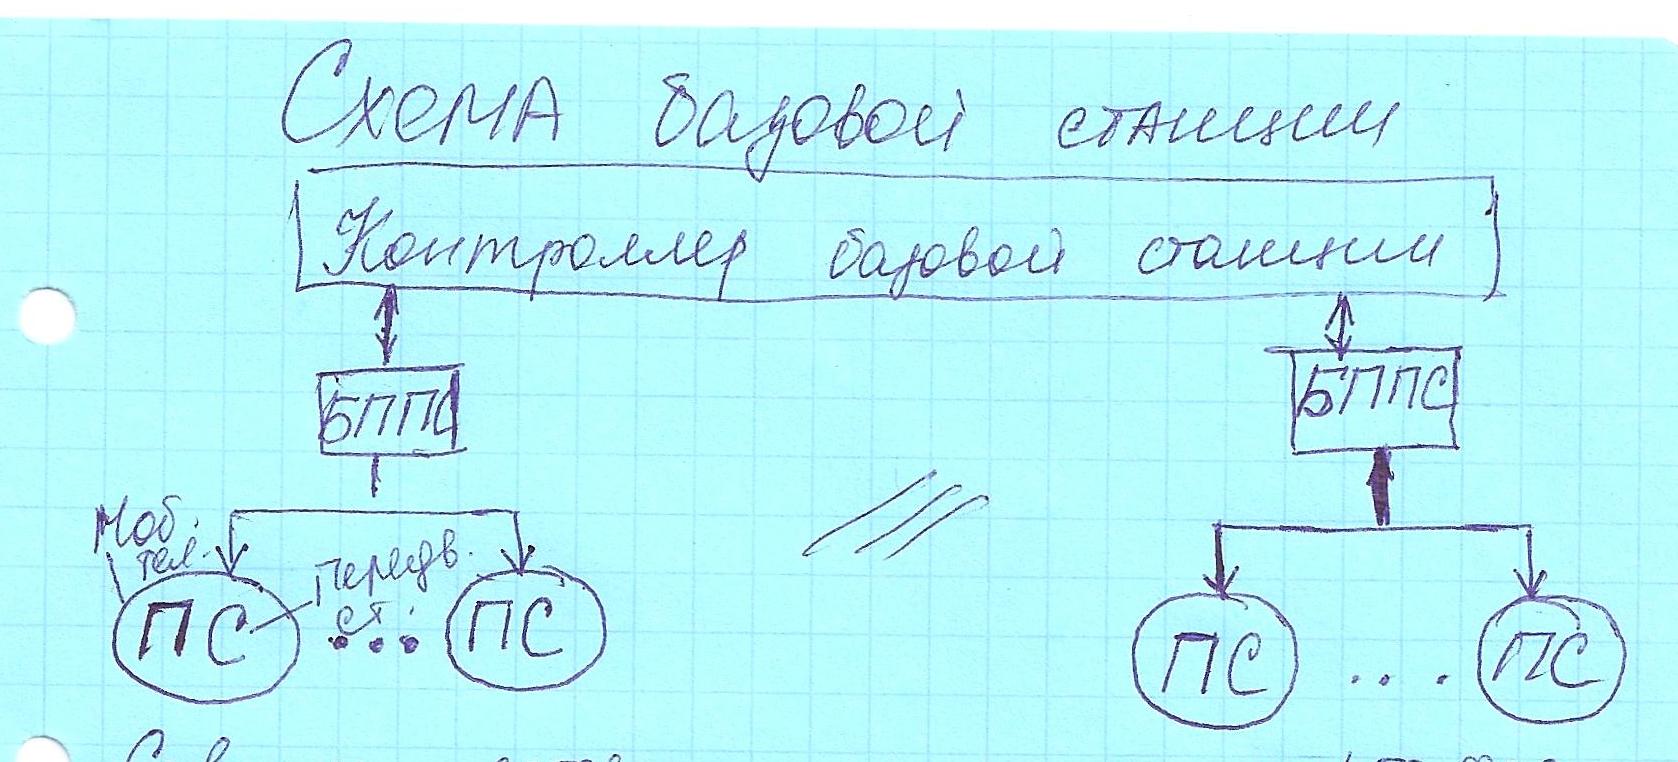 Схема базовой станции
Контроллер базовой станции
БППС
БППС
Моб.
тел.
Передв.
ст.
ПС
...
ПС
ПС
....
ПС